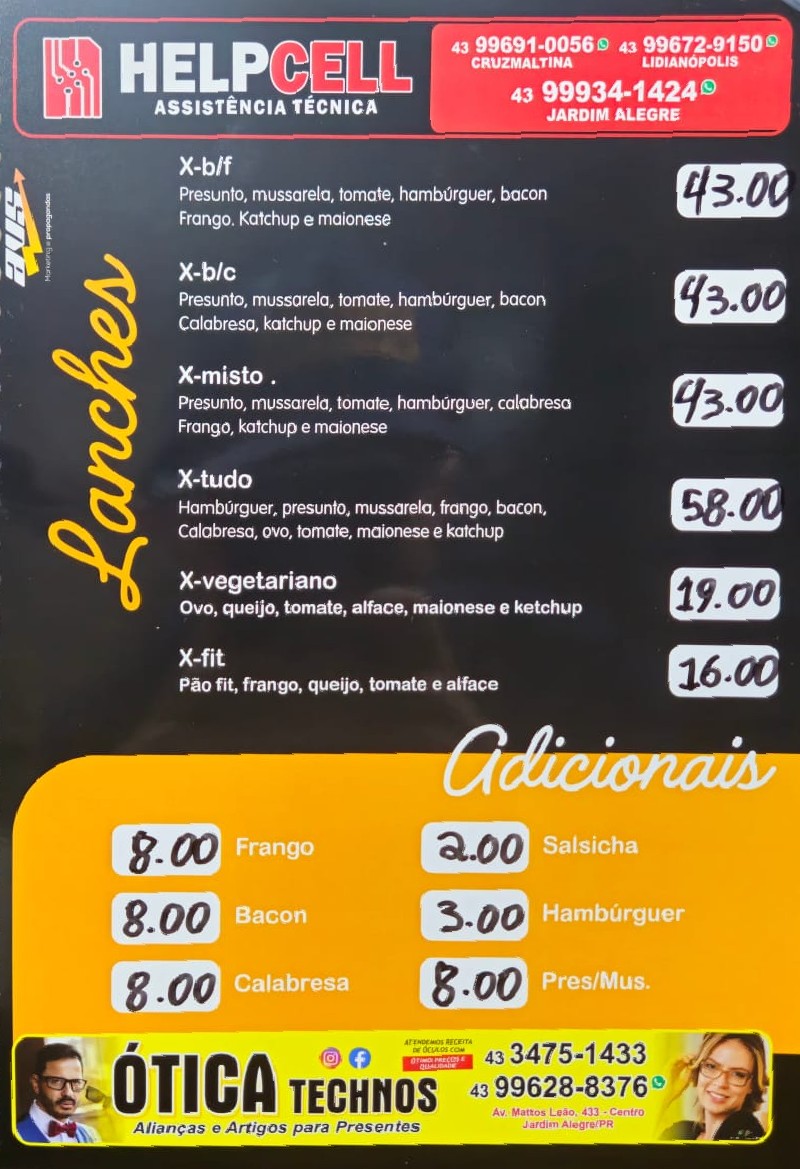 HELPCELL
ASSISTÊNCIA TÉCNICA
43 99691-0056 43 99672-9150
CRUZMALTINA LIDIANÓPOLIS
43 99934-1424
JARDIM ALEGRE
avs
Marketing e propagandas
Lanches
X-b/f
Presunto, mussarela, tomate, hambúrguer, bacon
Frango. Katchup e maionese
43.00
X-b/c
Presunto, mussarela, tomate, hambúrguer, bacon
Calabresa, katchup e maionese
43.00
X-misto .
Presunto, mussarela, tomate, hambúrguer, calabresa
Frango, katchup e maionese
43.00
X-tudo
Hambúrguer, presunto, mussarela, frango, bacon,
Calabresa, ovo, tomate, maionese e katchup
58.00
X-vegetariano
Ovo, queijo, tomate, alface, maionese e ketchup
19.00
X-fit
Pão fit, frango, queijo, tomate e alface
16.00
Adicionais
8.00 Frango
2.00 Salsicha
8.00 Bacon
3.00 Hambúrguer
8.00 Calabresa
8.00 Pres/Mus.
ÓTICA TECHNOS
Alianças e Artigos para Presentes
ATENDEMOS RECEITA
DE ÓCULOS COM
ÓTIMO PREÇOS E
QUALIDADE
43 3475-1433
43 99628-8376
Av. Mattos Leão, 433 - Centro
Jardim Alegre/PR